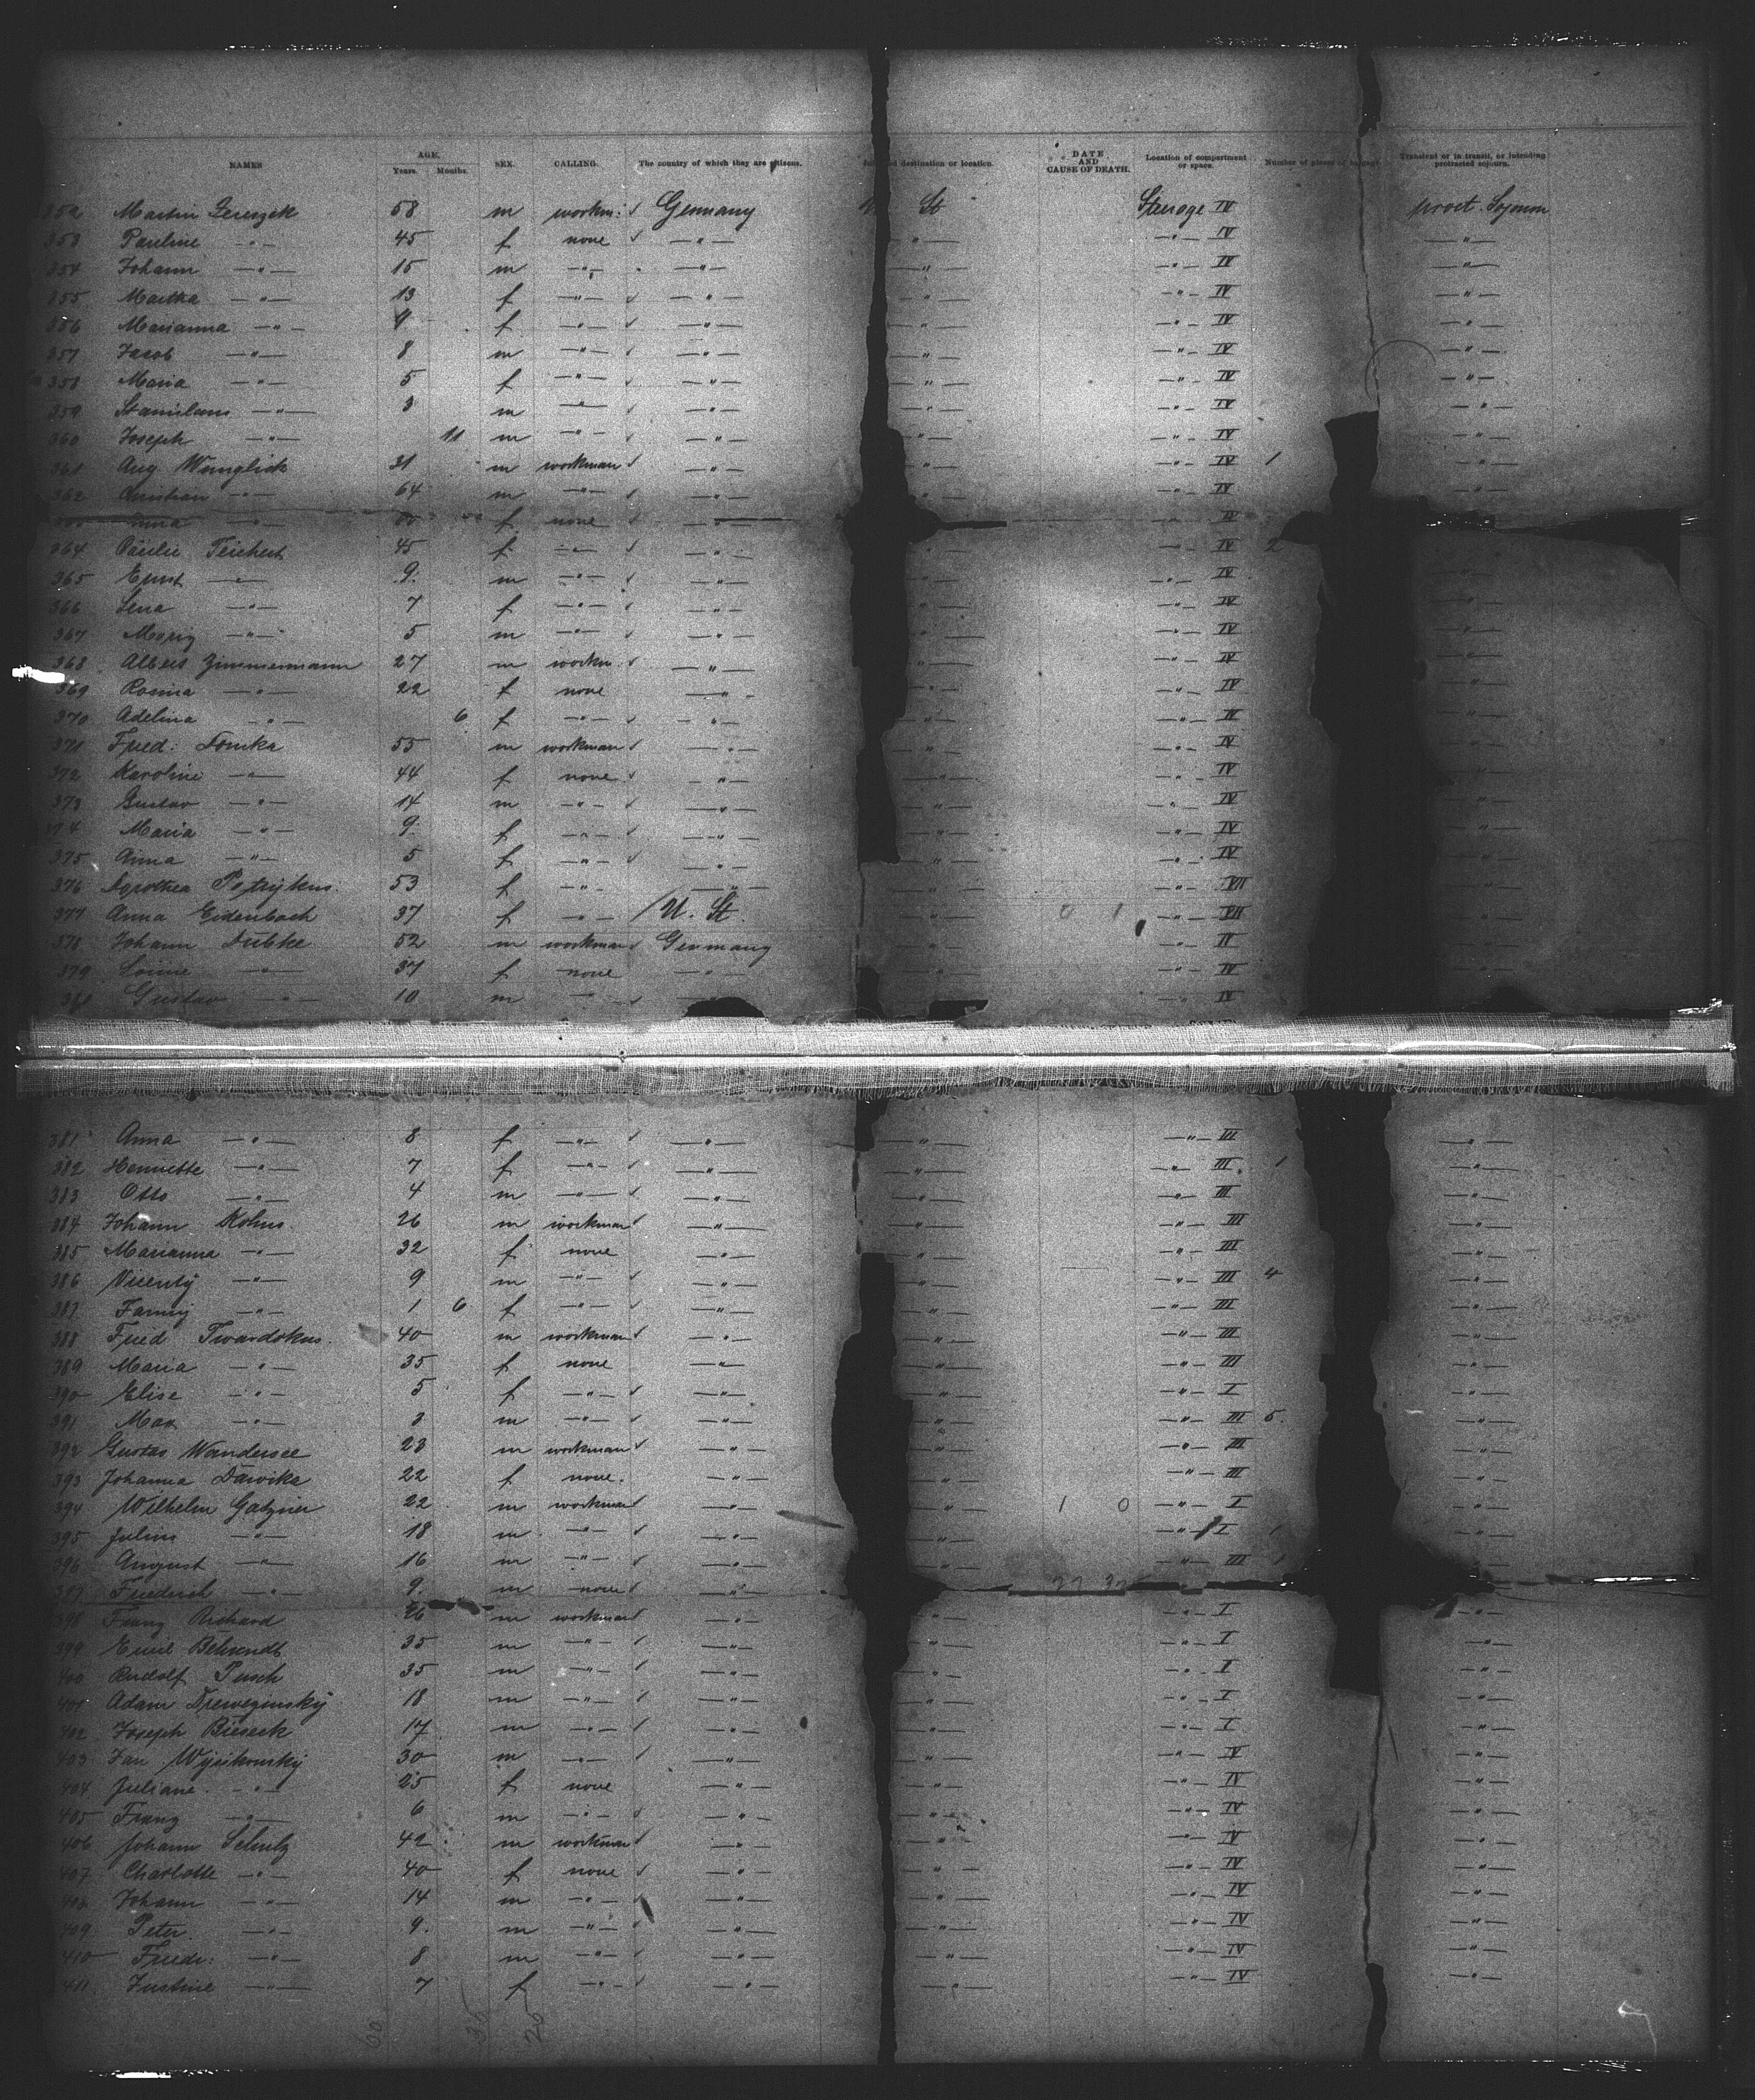 NAMES AGE. Years. Months. SEX. CALLING. The country of which they are citizens. destination or location. DATE AND CAUSE OF DEATH. Location of compartment or space. Number of pieces of Transient or in transit, or intending protracted sojourn.
352 Martin 58 m workm: Germany St Steerage IV prost. Sojourn
353 Pauline —"— 45 f none —"— —"— —"— IV —"—
354 Johann —"— 15 m —"— —"— —"— —"— IV —"—
355 Martha —"— 13 f —"— —"— —"— —"— IV —"—
356 Marianna —"— 9 f —"— —"— —"— —"— IV —"—
357 Jacob —"— 8 m —"— —"— —"— —"— IV —"—
358 Maria —"— 5 f —"— —"— —"— —"— IV —"—
359 Stanislaus —"— 3 m —"— —"— —"— —"— IV —"—
360 Joseph —"— 11 m —"— —"— —"— —"— IV —"—
361 Aug. 31 m workman —"— —"— —"— IV 1 —"—
362 Christian —"— 64 m —"— —"— —"— —"— IV —"—
Anna —"— f none —"— IV
364 Teichert 45 f —"— —"— —"— IV 2 —"—
365 Ernst —"— 9 m —"— —"— —"— —"— IV —"—
366 Lena —"— 7 f —"— —"— —"— —"— IV —"—
367 Moriz —"— 5 m —"— —"— —"— —"— IV —"—
368 Albert Zimmermann 27 m workm. —"— —"— —"— IV —"—
369 Rosina —"— 22 f none —"— —"— —"— IV —"—
370 Adelina —"— 6 f —"— —"— —"— —"— IV —"—
371 Fried: Domka 55 m workman —"— —"— —"— IV —"—
372 Karoline —"— 44 f none —"— —"— —"— IV —"—
373 Gustav —"— 14 m —"— —"— —"— —"— IV —"—
374 Maria —"— 9 f —"— —"— —"— —"— IV —"—
375 Anna —"— 5 f —"— —"— —"— —"— IV —"—
376 Dorothea Petrykus. 53 f —"— —"— —"— —"— VII —"—
377 Anna Eidenbach 37 f —"— U. St. —"— 0 1 —"— VII —"—
378 Johann Dubke 52 m workman Germany —"— —"— IV —"—
379 —"— 37 f none —"— —"— —"— IV —"—
380 Gustav —"— 10 m —"— —"— IV
381 Anna —"— 8 f —"— —"— —"— —"— III —"—
382 Henriette —"— 7 f —"— —"— —"— —"— III 1 —"—
383 Otto —"— 4 m —"— —"— —"— —"— III —"—
384 Johann Kohns. 26 m workman —"— —"— —"— III —"—
385 Marianna —"— 32 f none —"— —"— —"— III —"—
386 Vicenty —"— 9 m —"— —"— —"— —"— III 4 —"—
387 Fanny —"— 1 6 f —"— —"— —"— —"— III —"—
388 Fried Twardokus. 40 m workman —"— —"— —"— III —"—
389 Maria —"— 35 f none —"— —"— —"— III —"—
390 Elise —"— 5 f —"— —"— —"— —"— I —"—
391 Max —"— 3 m —"— —"— —"— —"— III 5. —"—
392 Gustav Wandersee 23 m workman —"— —"— —"— III —"—
393 Johanna Dawika 22 f none. —"— —"— —"— III —"—
394 Wilhelm Gatzner 22 m workman —"— —"— 1 0 —"— I —"—
395 Julius —"— 18 m —"— —"— —"— —"— I 1 —"—
396 August —"— 16 m —"— —"— —"— —"— III 1 —"—
397 Friedrich —"— 9. m none —"—
398 Franz Richard 26 m workman —"— —"— —"— I —"—
399 Emil Behrendt 35 m —"— —"— —"— —"— I —"—
400 Rudolf Pusch 35 m —"— —"— —"— —"— I —"—
401 Adam 18 m —"— —"— —"— —"— I —"—
402 Joseph Bieseck 17 m —"— —"— —"— —"— I —"—
403 Jan 30 m —"— —"— —"— —"— IV —"—
404 Juliane —"— 25 f none —"— —"— —"— IV —"—
405 Franz —"— 6 m —"— —"— —"— —"— IV —"—
406 Johann Schulz 42 m workman —"— —"— —"— IV —"—
407 Charlotte —"— 40 f none —"— —"— —"— IV —"—
408 Johann —"— 14 m —"— —"— —"— —"— IV —"—
409 Peter. —"— 9. m —"— —"— —"— —"— IV —"—
410 Friedr: —"— 8 m —"— —"— —"— —"— IV —"—
411 Justine —"— 7 f —"— —"— —"— —"— IV —"—